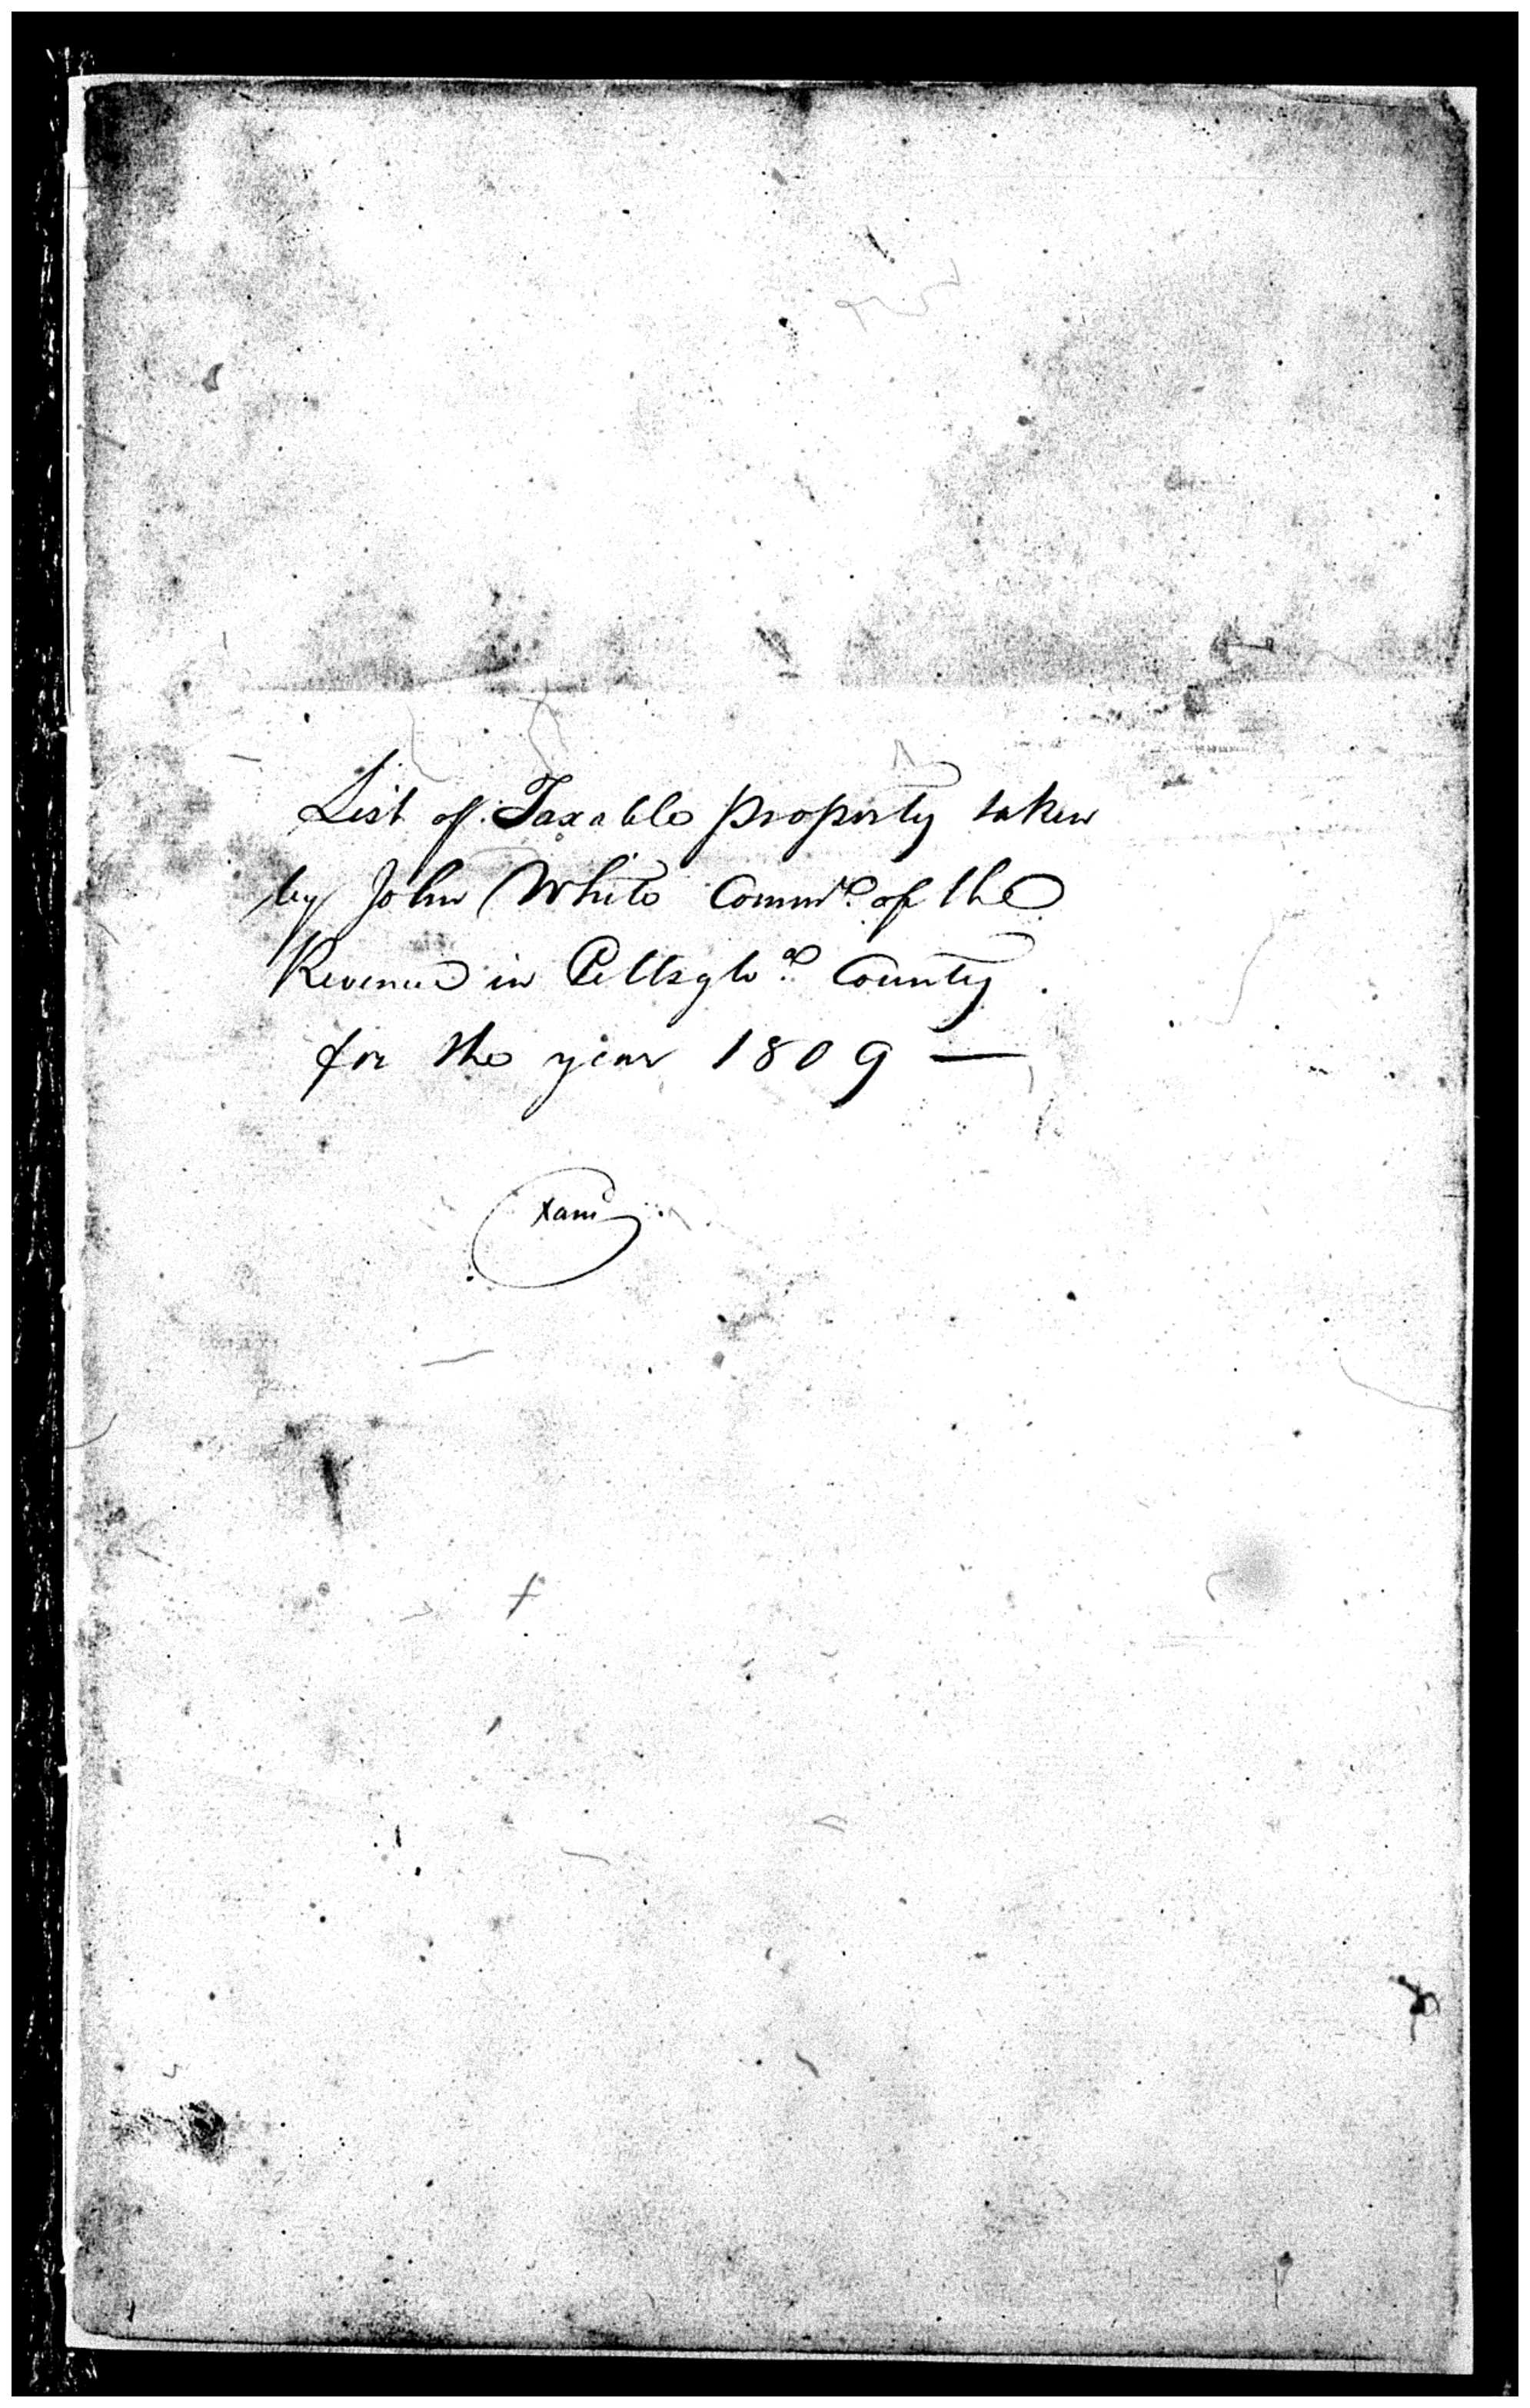 List of Taxable property taken
by John White Commr. of the
Revenue in Pittsylva. County
for the year 1809 —
Examd